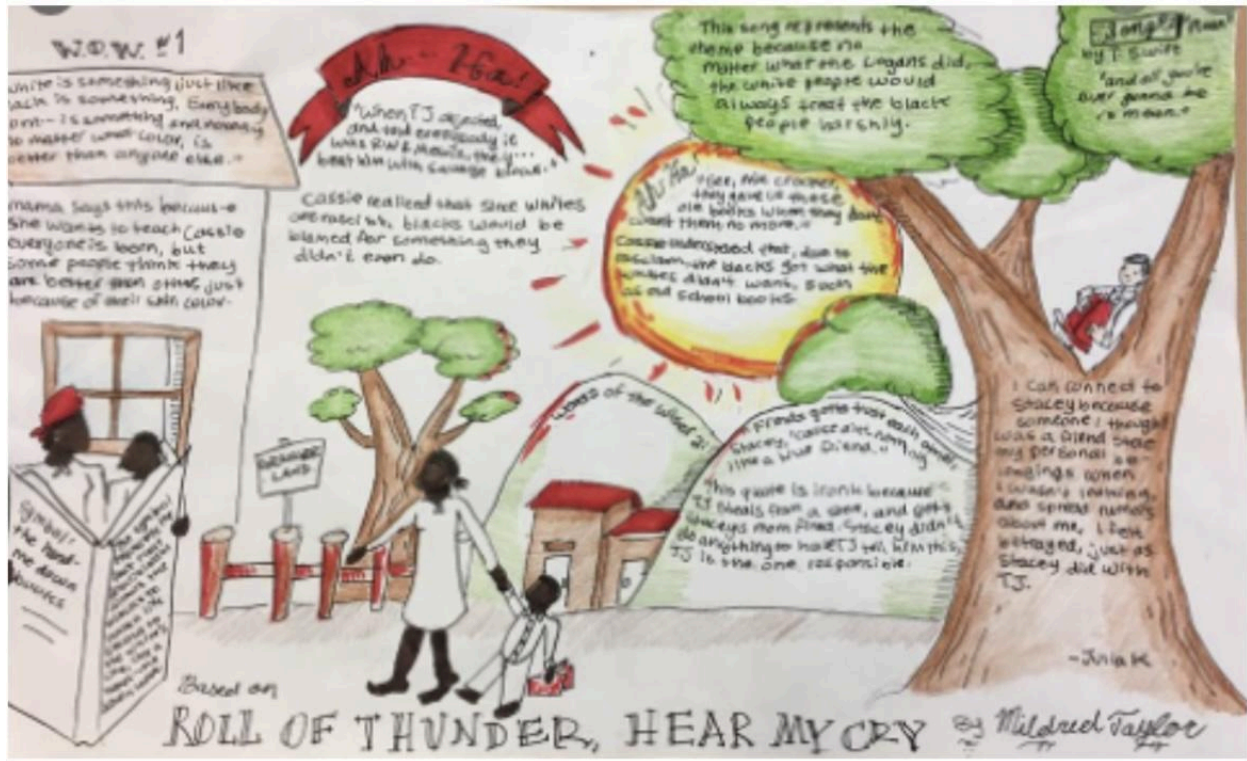 W.O.W. #1
white is something just like
is something. Everybody
is something and nobody,
no matter what color, is
better than anyone else."
mama says this because
she wants to teach Cassie
everyone is born, but
some people think they
are better than others just
because of their skin color.
Symbol:
the hand-
me down
books
Ah-Ha!
"When TJ
and said everybody it
was R.W & Melvin, they...
beat him with savage blows."
Cassie realized that since whites
are racist, blacks would be
blamed for something they
didn't even do.
Ah Ha!
"See, Miz Crocker,
they give us these
ole books when they
want them no more."
Cassie understood that, due to
racism, the blacks got what the
whites didn't want, such
as old school books.
This song represents the
theme because no
matter what the Logans did,
the white people would
always treat the black
people harshly.
Song: Mean
by T. Swift
"and all you're
ever gonna be
is mean."
GRANGER
LAND
Words of the Wiser 2:
"Friends gotta trust each other,
Stacey, 'cause ain't nothing
like a true friend."
This quote is ironic because
TJ steals from a store, and gets
Stacey's mom fired. Stacey didn't
do anything to have TJ tell him this,
TJ is the one responsible.
I can connect to
Stacey because
someone I thought
was a friend stole
my personal be-
longings when
I wasn't looking,
and spread rumors
about me, I felt
betrayed, just as
Stacey did with
TJ.
-Julia K
Based on
ROLL OF THUNDER, HEAR MY CRY By Mildred Taylor